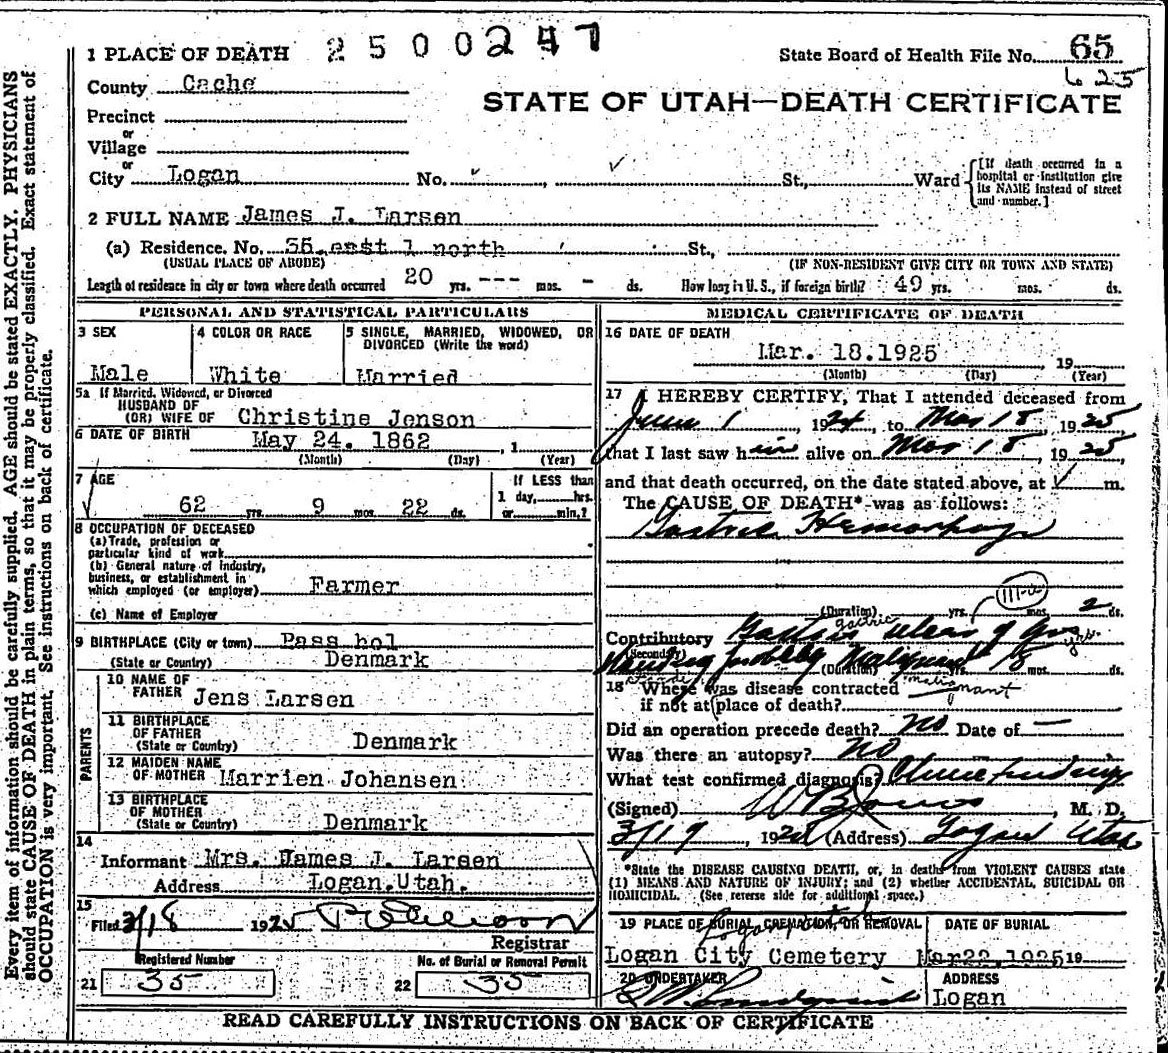 Every item of information should be carefully supplied. AGE should be stated EXACTLY. PHYSICIANS
should state CAUSE OF DEATH in plain terms, so that it may be properly classified. Exact statement of
OCCUPATION is very important. See instructions on back of certificate.
1 PLACE OF DEATH 2500247
State Board of Health File No. 65
625
County Cache
STATE OF UTAH—DEATH CERTIFICATE
Precinct
or
Village
or
City Logan No. St., Ward
[If death occurred in a hospital or institution give its NAME instead of street and number.]
2 FULL NAME James J. Larsen
(a) Residence. No. 35 east 1 north St.,
(USUAL PLACE OF ABODE) (IF NON-RESIDENT GIVE CITY OR TOWN AND STATE)
Length of residence in city or town where death occurred 20 yrs. --- mos. - ds. How long in U. S., if foreign birth? 49 yrs. mos. ds.
PERSONAL AND STATISTICAL PARTICULARS
3 SEX
Male
4 COLOR OR RACE
White
5 SINGLE, MARRIED, WIDOWED, OR DIVORCED (Write the word)
Married
5a If Married, Widowed, or Divorced
HUSBAND OF
(OR) WIFE OF Christine Jenson
6 DATE OF BIRTH May 24. 1862, 1
(Month) (Day) (Year)
7 AGE
62 yrs. 9 mos. 22 ds.
If LESS than
1 day, hrs.
or min.?
8 OCCUPATION OF DECEASED
(a) Trade, profession or
particular kind of work
(b) General nature of industry,
business, or establishment in
which employed (or employer) Farmer
(c) Name of Employer
9 BIRTHPLACE (City or town) Pass hol
(State or Country) Denmark
PARENTS
10 NAME OF
FATHER Jens Larsen
11 BIRTHPLACE
OF FATHER
(State or Country) Denmark
12 MAIDEN NAME
OF MOTHER Marrien Johansen
13 BIRTHPLACE
OF MOTHER
(State or Country) Denmark
14
Informant Mrs. James J. Larsen
Address Logan.Utah.
15
Filed 3/18 1925
Registrar
Registered Number
21 35
No. of Burial or Removal Permit
22 35
MEDICAL CERTIFICATE OF DEATH
16 DATE OF DEATH
Mar. 18.1925 19
(Month) (Day) (Year)
17 I HEREBY CERTIFY, That I attended deceased from
June 1, 1924, to Mar 18, 1925,
that I last saw him alive on Mar 18, 1925
and that death occurred, on the date stated above, at m.
The CAUSE OF DEATH* was as follows:
Gastric Hemorhage
III-a
(Duration) yrs. mos. 2 ds.
gastric
Contributory ulcer of
(Secondary) yrs.
probably Malignant (Duration) yrs. 8 mos. ds.
malignant
18 Where was disease contracted
if not at place of death?
Did an operation precede death? No Date of —
Was there an autopsy? No
What test confirmed diagnosis? findings
(Signed) M. D.
3/19 192 (Address) Logan Utah
*State the DISEASE CAUSING DEATH, or, in deaths from VIOLENT CAUSES state
(1) MEANS AND NATURE OF INJURY; and (2) whether ACCIDENTAL, SUICIDAL OR
HOMICIDAL. (See reverse side for additional space.)
19 PLACE OF BURIAL, CREMATION, OR REMOVAL
Logan City Cemetery
DATE OF BURIAL
Mar22,1925 19
20 UNDERTAKER
ADDRESS
Logan
READ CAREFULLY INSTRUCTIONS ON BACK OF CERTIFICATE